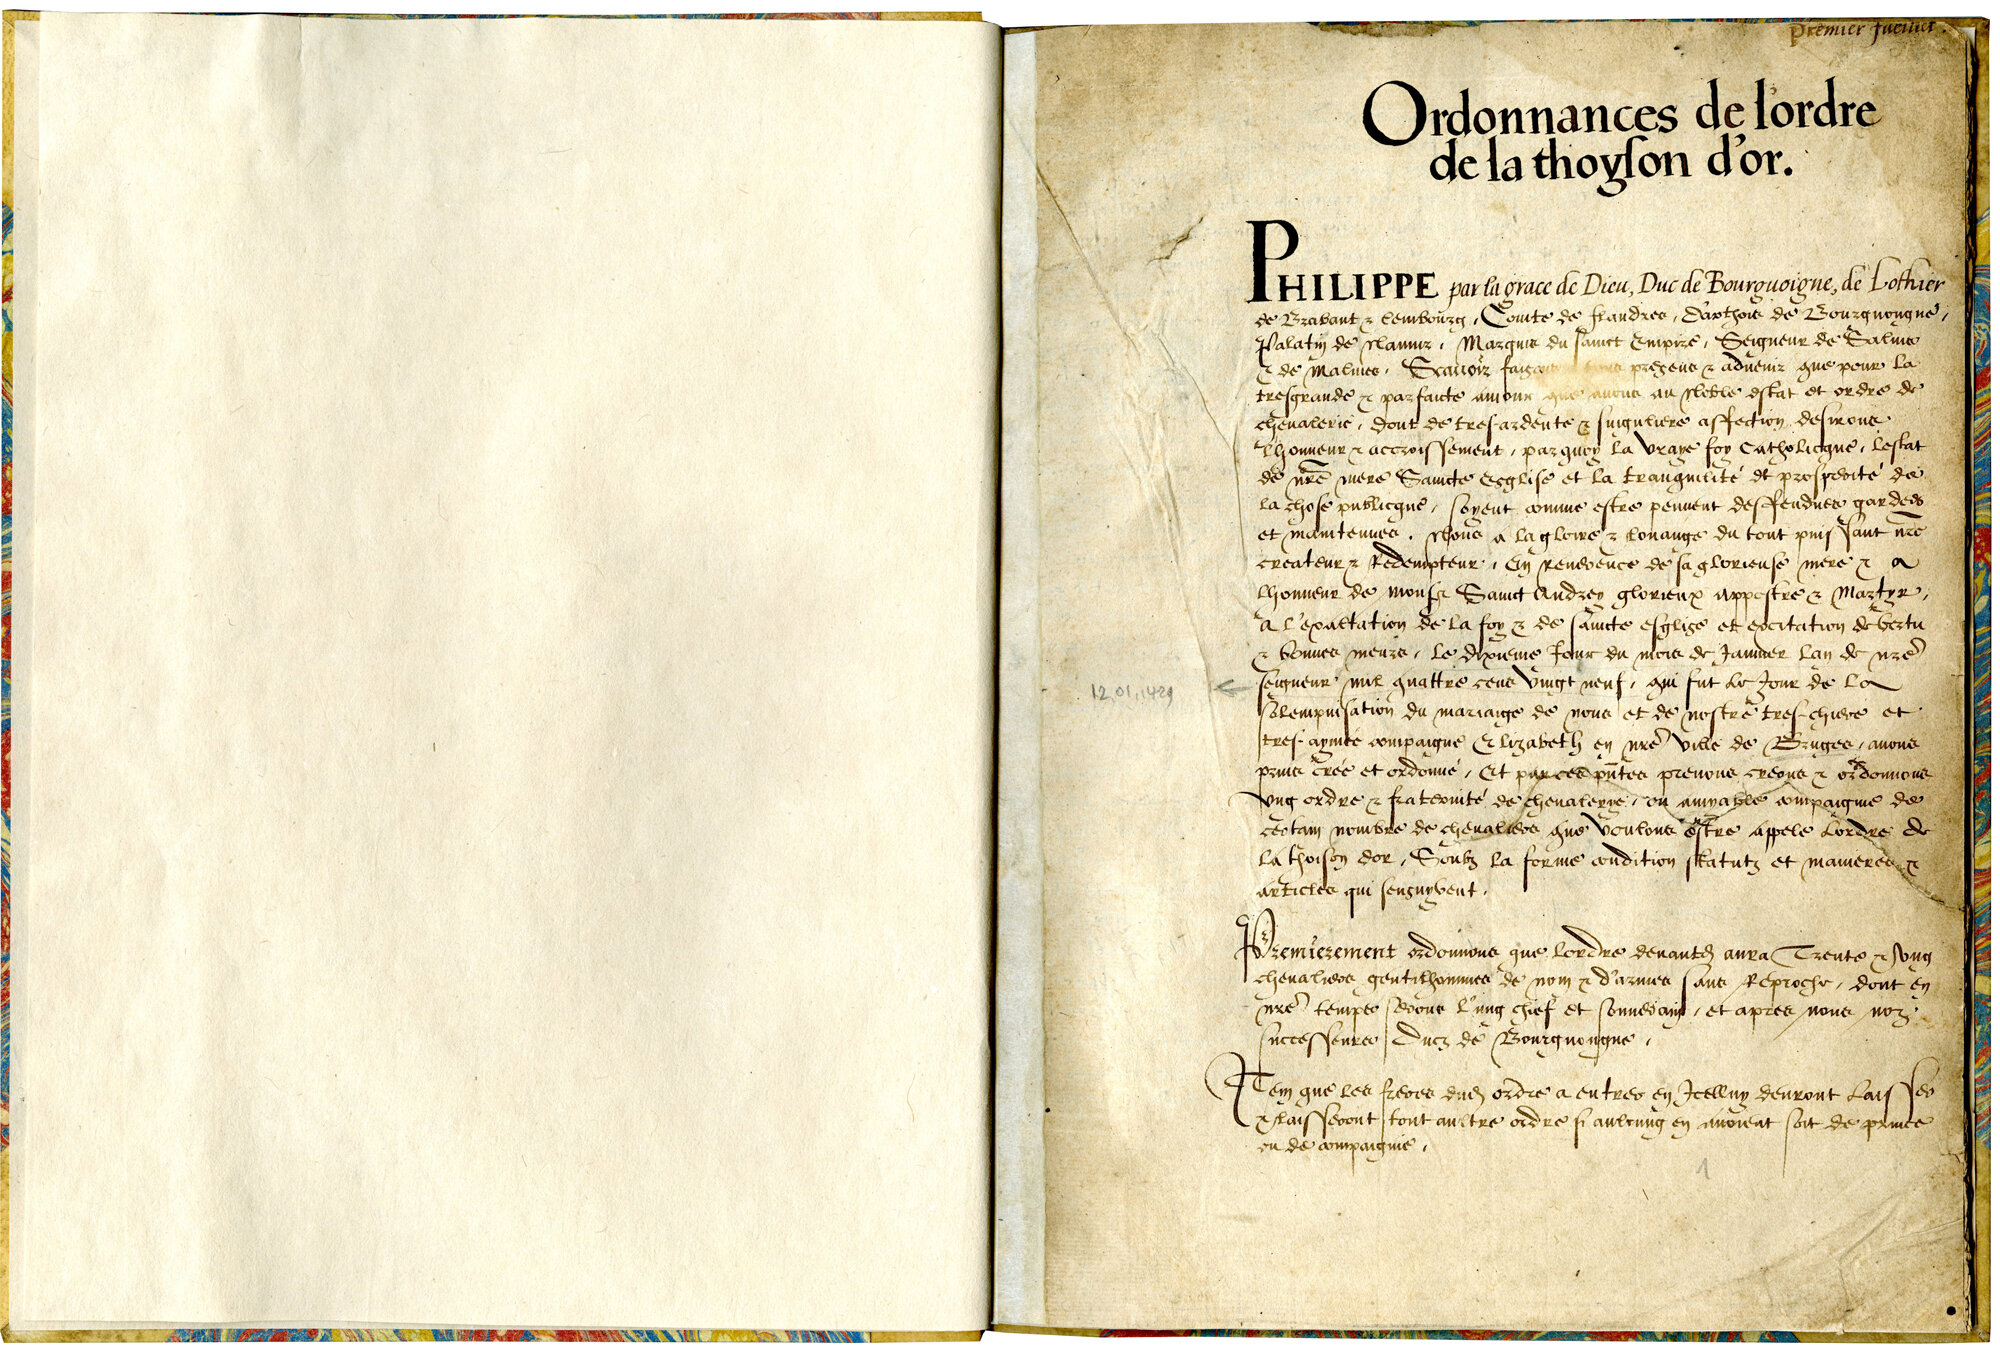 Premier
Ordonnances de lordre
de la thoyson d'or.
PHILIPPE par la grace de Dieu, Duc de Bourguoigne, de Lothier
de Brabant & lembourg, Comte de flandres, darthois de Bourgnongne,
Palatin de Namur, Marquis du sainct Empire, Seigneur de Salins
& de Malines, Scavoir faisons presens & advenir que pour la
tresgrande & parfaicte amour que avons au Noble estat et ordre de
chevalerie, dont de tres-ardente & singuliere affection desirons
lhonneur & accroissement, parquoy la vraye foy Catholicque, lestat
de nre mere Saincte esglise et la tranquilité et prosperité de
la chose publicque, soyent comme estre peuvent deffendues gardees
et maintenues, Nous a la gloire & louange du tout puissant nre
createur & Redempteur, En reverence de sa glorieuse mere & a
lhonneur de monsr Sainct Andrey glorieux appostre & Martyr,
a l'exaltation de la foy & de saincte esglise et excitation de vertu
& bonnes meurs, le dixieme jour du mois de Janvier lan de nre
seigneur mil quattre cens vingt neuf, qui fut le Jour de la
12.01.1429
solempnisation du mariaige de nous et de nostre tres-chiere et
tres-aymée compaigne Elizabeth en nre ville de Bruges, avons
prins crée et ordonné, Et par ces pntes prenons creons & ordonnons
ung ordre & fraternité de chevalerye, ou amyable compaignie de
certain nombre de chevaliers que voulons estre appele lordre de
la thoison dor, Soubz la forme condition statutz et manieres &
articles qui sensuyvent.
Premierement ordonnons que lordre devantd aura Trente & Ung
chevaliers gentilhommes de nom & d'armes sans Reproche, dont en
nre temps serons l'ung chief et souverain, et apres nous noz
successeurs Ducz de Bourgnongne.
Item que les freres dud ordre a entrer en Icelluy devront laisser
& laisseront tout aultre ordre si aulcung en avoient soit de prince
ou de compaignie.
1